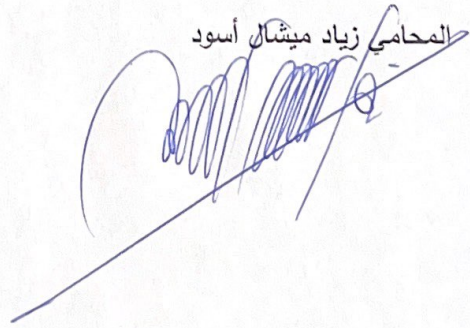 المحامي زياد ميشال أسود